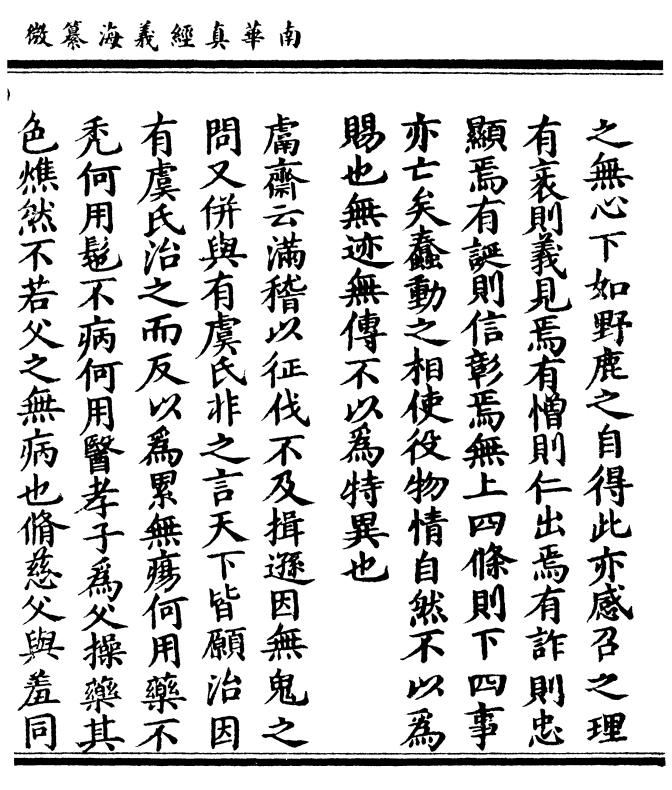 南華真經義海纂微
之無心下如野鹿之自得此亦感召之理
有衮則義見焉有憎則仁出焉有詐則忠
顯焉有誕則信彰焉無上四條則下四事
亦亡矣蠢動之相使役物情自然不以為
賜也無迹無傳不以為特異也
鬳齋云滿稽以征伐不及揖遜因無鬼之
問又併與有虞氏非之言天下皆願治因
有虞氏治之而反以為累無瘍何用藥不
禿何用髢不病何用醫孝子為父操藥其
色燋然不若父之無病也脩慈父與羞同